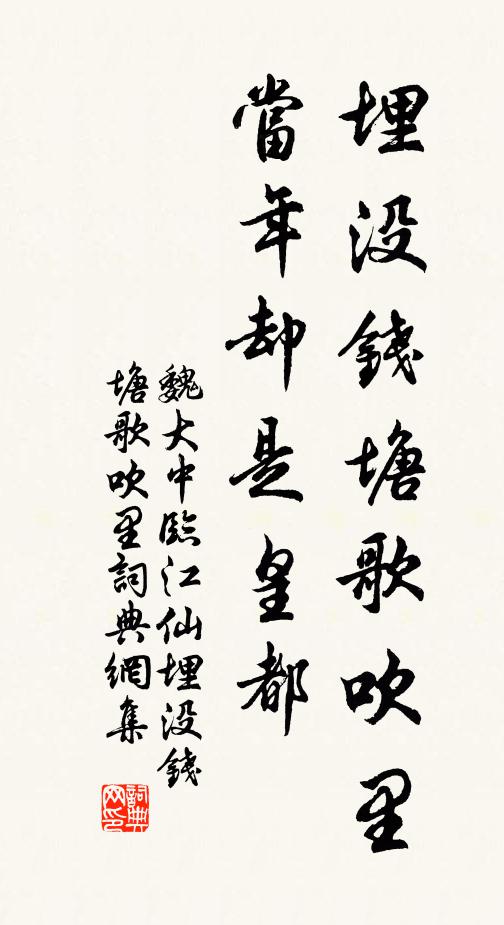 埋没錢塘歌吹里
當年却是皇都
魏大中臨江仙埋没錢
塘歌吹里詞典網集
詞典网印